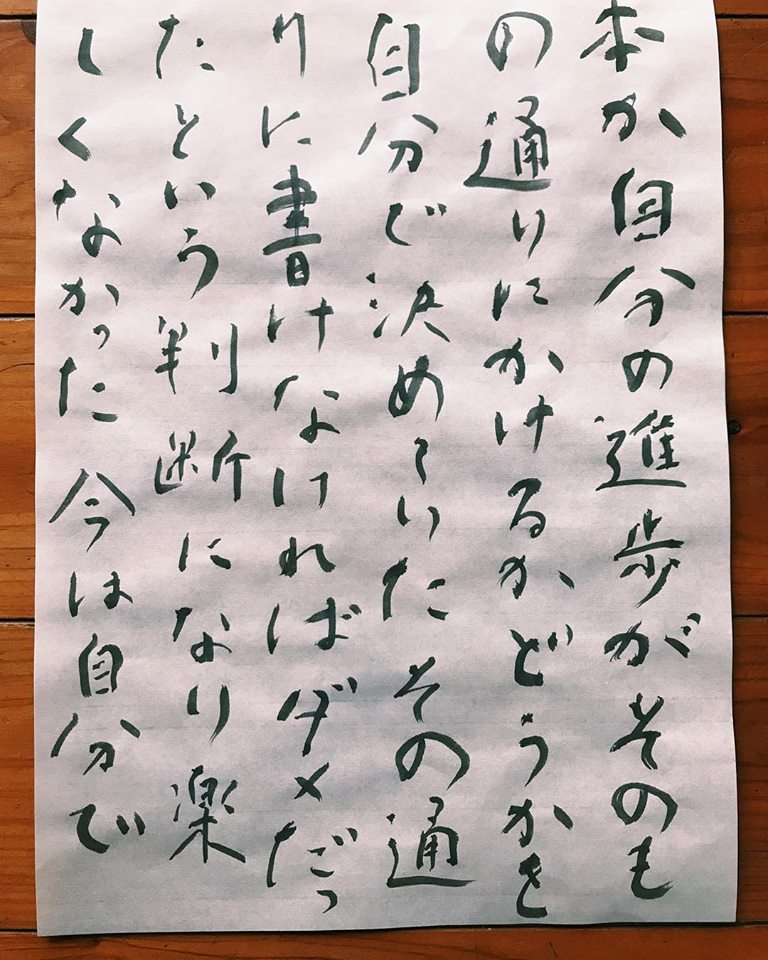 本か自分の進歩がそのも
の通りにかけるかどうかを
自分で決めていた その通
りに書けなければダメだっ
たという判断になり楽
しくなかった 今は自分で